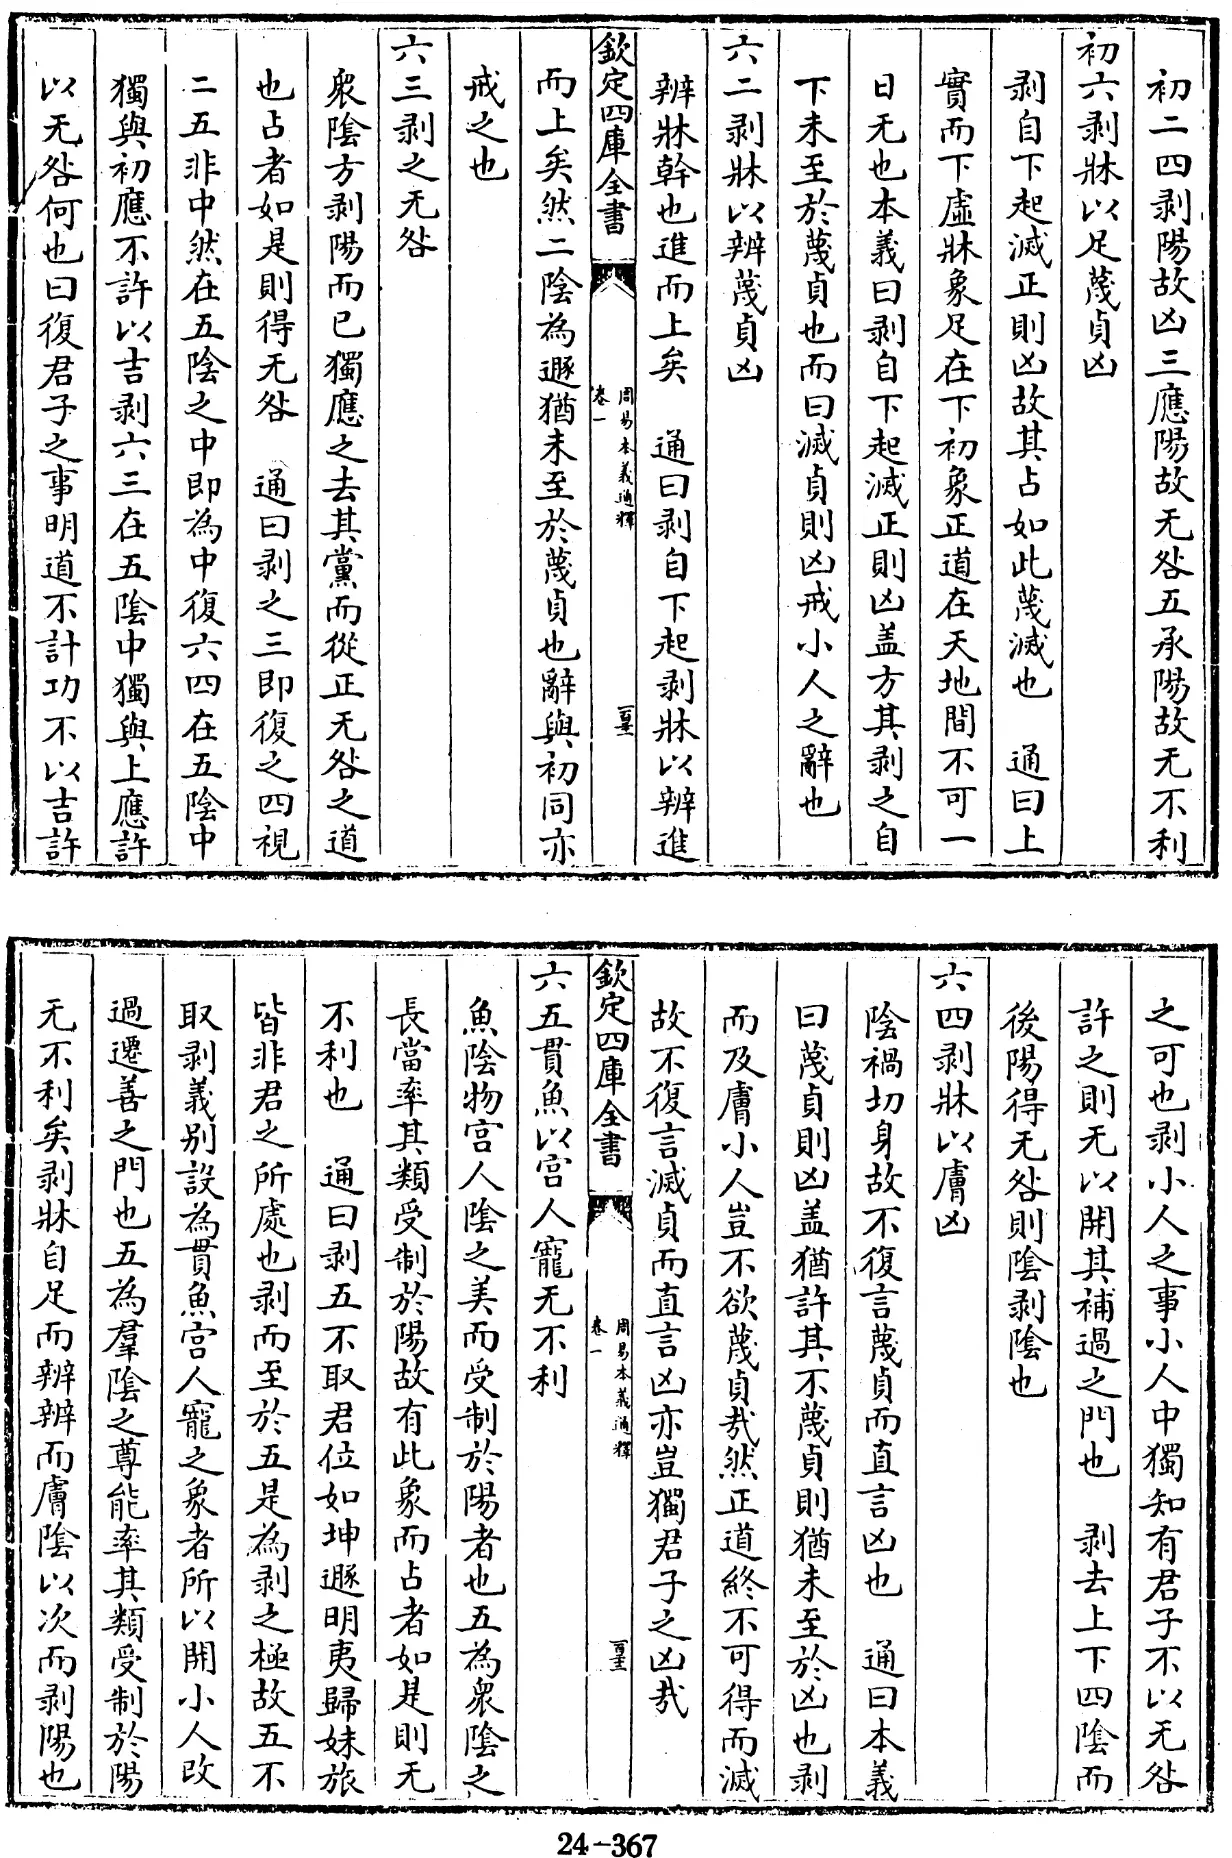 初二四剥陽故凶三應陽故无咎五承陽故无不利
初六剥牀以足蔑貞凶
剥自下起滅正則凶故其占如此蔑滅也　通曰上
實而下虛牀象足在下初象正道在天地間不可一
日无也本義曰剥自下起滅正則凶盖方其剥之自
下未至於蔑貞也而曰滅貞則凶戒小人之辭也
六二剥牀以辨蔑貞凶
辨牀幹也進而上矣　通曰剥自下起剥牀以辨進
欽定四庫全書
周易本義通釋
卷一
而上矣然二陰為遯猶未至於蔑貞也辭與初同亦
戒之也
六三剥之无咎
衆陰方剥陽而已獨應之去其黨而從正无咎之道
也占者如是則得无咎　通曰剥之三即復之四視
二五非中然在五陰之中即為中復六四在五陰中
獨與初應不許以吉剥六三在五陰中獨與上應許
以无咎何也曰復君子之事明道不計功不以吉許
之可也剥小人之事小人中獨知有君子不以无咎
許之則无以開其補過之門也　剥去上下四陰而
後陽得无咎則陰剥陰也
六四剥牀以膚凶
陰禍切身故不復言蔑貞而直言凶也　通曰本義
曰蔑貞則凶盖猶許其不蔑貞則猶未至於凶也剥
而及膚小人豈不欲蔑貞㢤然正道終不可得而滅
故不復言滅貞而直言凶亦豈獨君子之凶㢤
欽定四庫全書
周易本義通釋
卷一
六五貫魚以宫人寵无不利
魚陰物宫人陰之美而受制於陽者也五為衆陰之
長當率其類受制於陽故有此象而占者如是則无
不利也　通曰剥五不取君位如坤遯明夷歸妹旅
皆非君之所處也剥而至於五是為剥之極故五不
取剥義别設為貫魚宫人寵之象者所以開小人改
過遷善之門也五為羣陰之尊能率其類受制於陽
无不利矣剥牀自足而辨辨而膚陰以次而剥陽也
24-367